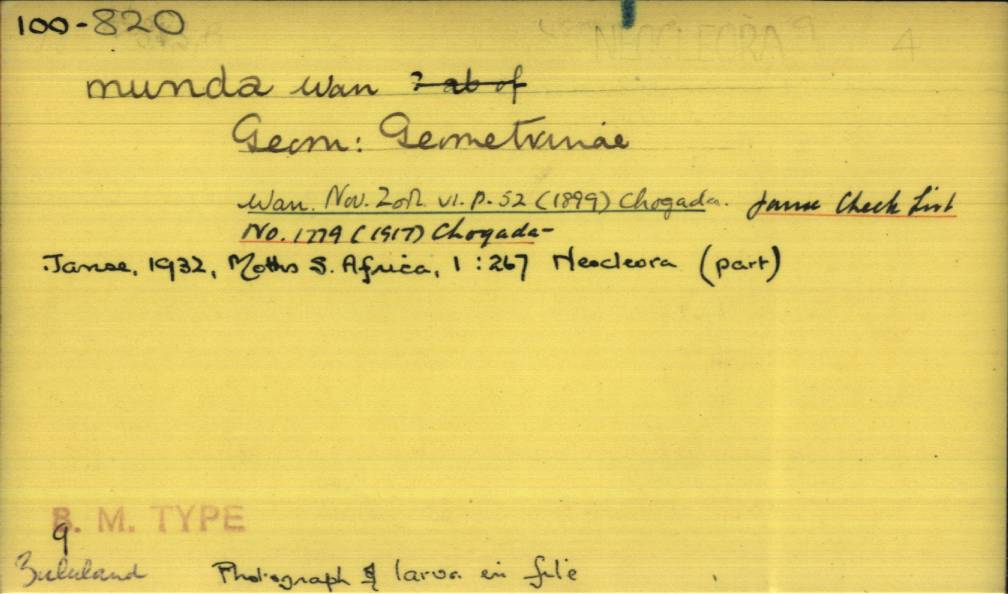 100-820
NEOCLEORA 4
munda Warr ? ab of
Geom: Geometrinae
Warr. Nov. Zool. VI. p. 52 (1899) Chogada. Janse Check List
No. 1779 (1917) Chogada-
Janse, 1932, Moths S. Africa, 1:267 Neocleora (part)
B. M. TYPE
♀
Zululand Photograph & larva in file